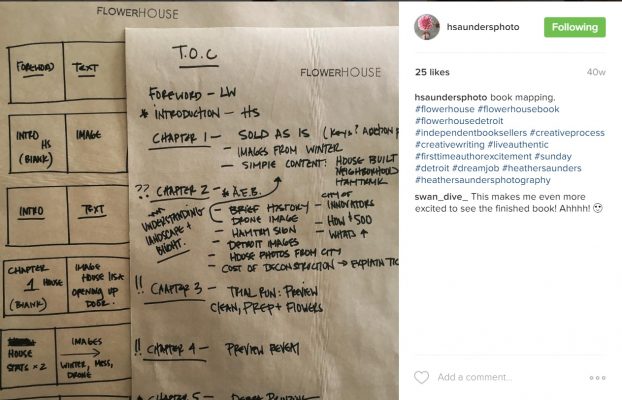 FLOWERHOUSE
FOREWORD
TEXT
INTRO
HS
(BLANK)
IMAGE
INTRO
TEXT
CHAPTER
1 HOUSE
(BLANK)
IMAGE
HOUSE
OPENING UP
DOOR.
HOUSE
STATS x 2
IMAGES
WINTER, MESS,
DRONE
T.O.C
FLOWERHOUSE
FOREWORD - LW
* INTRODUCTION - HS
CHAPTER 1 - SOLD AS IS (Keys? AUCTION
- IMAGES FROM WINTER
- SIMPLE CONTENT: HOUSE BUILT
NEIGHBORHOOD
HAMTRMK
?? CHAPTER 2 - * A.E.B.
UNDERSTANDING
LANDSCAPE +
BLIGHT.
- BRIEF HISTORY
- DRONE IMAGE
- HAMTRM SIGN
- DETROIT IMAGES
- HOUSE PHOTOS FROM CITY
- COST OF DECONSTRUCTION → EXPLAIN
CITY OF
- INNOVATORS
- HOW $500
- WHATS ↑
!! CHAPTER 3 - TRIAL RUN: PREVIEW
CLEAN, PREP + FLOWERS
!! CHAPTER 4 - PREVIEW REVEAT
* CHAPTER 5 -
hsaundersphoto
Following
25 likes
40w
hsaundersphoto book mapping.
#flowerhouse #flowerhousebook
#flowerhousedetroit
#independentbooksellers #creativeprocess
#creativewriting #liveauthentic
#firsttimeauthorexcitement #sunday
#detroit #dreamjob #heathersaunders
#heathersaundersphotography
swan_dive_ This makes me even more
excited to see the finished book! Ahhhh! 🙂
Add a comment...